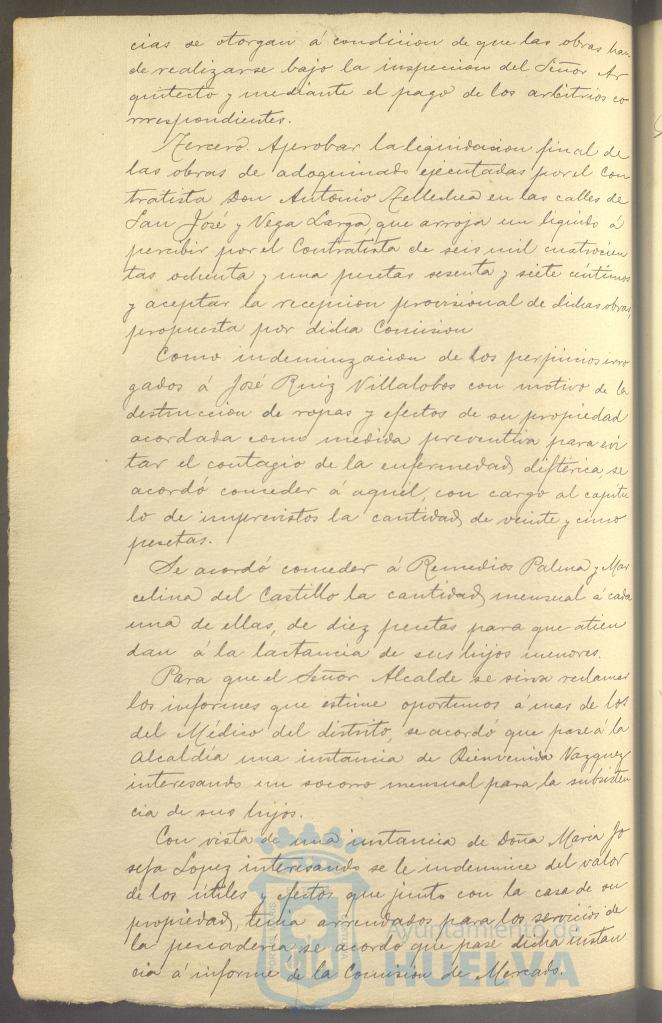 cias se otorgan á condicion de que las obras han
de realizarse bajo la inspeccion del Señor Ar
quitecto y mediante el pago de los arbitrios co
rrrespondientes.
Tercero. Aprobar la liquidacion final de
las obras de adoquinado ejecutadas por el con
tratista Don Antonio Tellechea en las calles de
San José y Vega Larga, que arroja un liquido á
percibir por el Contratista de seis mil cuatrocien
tas ochenta y una pesetas sesenta y siete céntimos
y aceptar la recepcion provisional de dichas obras,
propuesta por dicha Comision
Como indemnizacion de los perjuicios irro
gados á José Ruiz Villalobos con motivo de la
destruccion de ropas y efectos de su propiedad
acordada como medida preventiva para evi
tar el contagio de la enfermedad diftérica, se
acordó conceder á aquél, con cargo al capítu
lo de imprevistos la cantidad de veinte y cinco
pesetas.
Se acordó conceder á Remedios Palma y Mar
celina del Castillo la cantidad mensual á cada
una de ellas, de diez pesetas para que atien
dan á la lactancia de sus hijos menores.
Para que el Señor Alcalde se sirva reclamar
los informes que estime oportunos á mas de los
del Médico del distrito, se acordó que pase á la
Alcaldía una instancia de Bienvenida Vazquez
interesando un socorro mensual para la subsisten
cia de sus hijos.
Con vista de una instancia de Doña Maria Jo
sefa Lopez interesando se le indemnice del valor
de los útiles y efectos que junto con la casa de su
propiedad, tenia arrendados para los servicios de
la pescadería, se acordó que pase dicha instan
cia á informe de la Comision de Mercado.
Ayuntamiento de
HUELVA